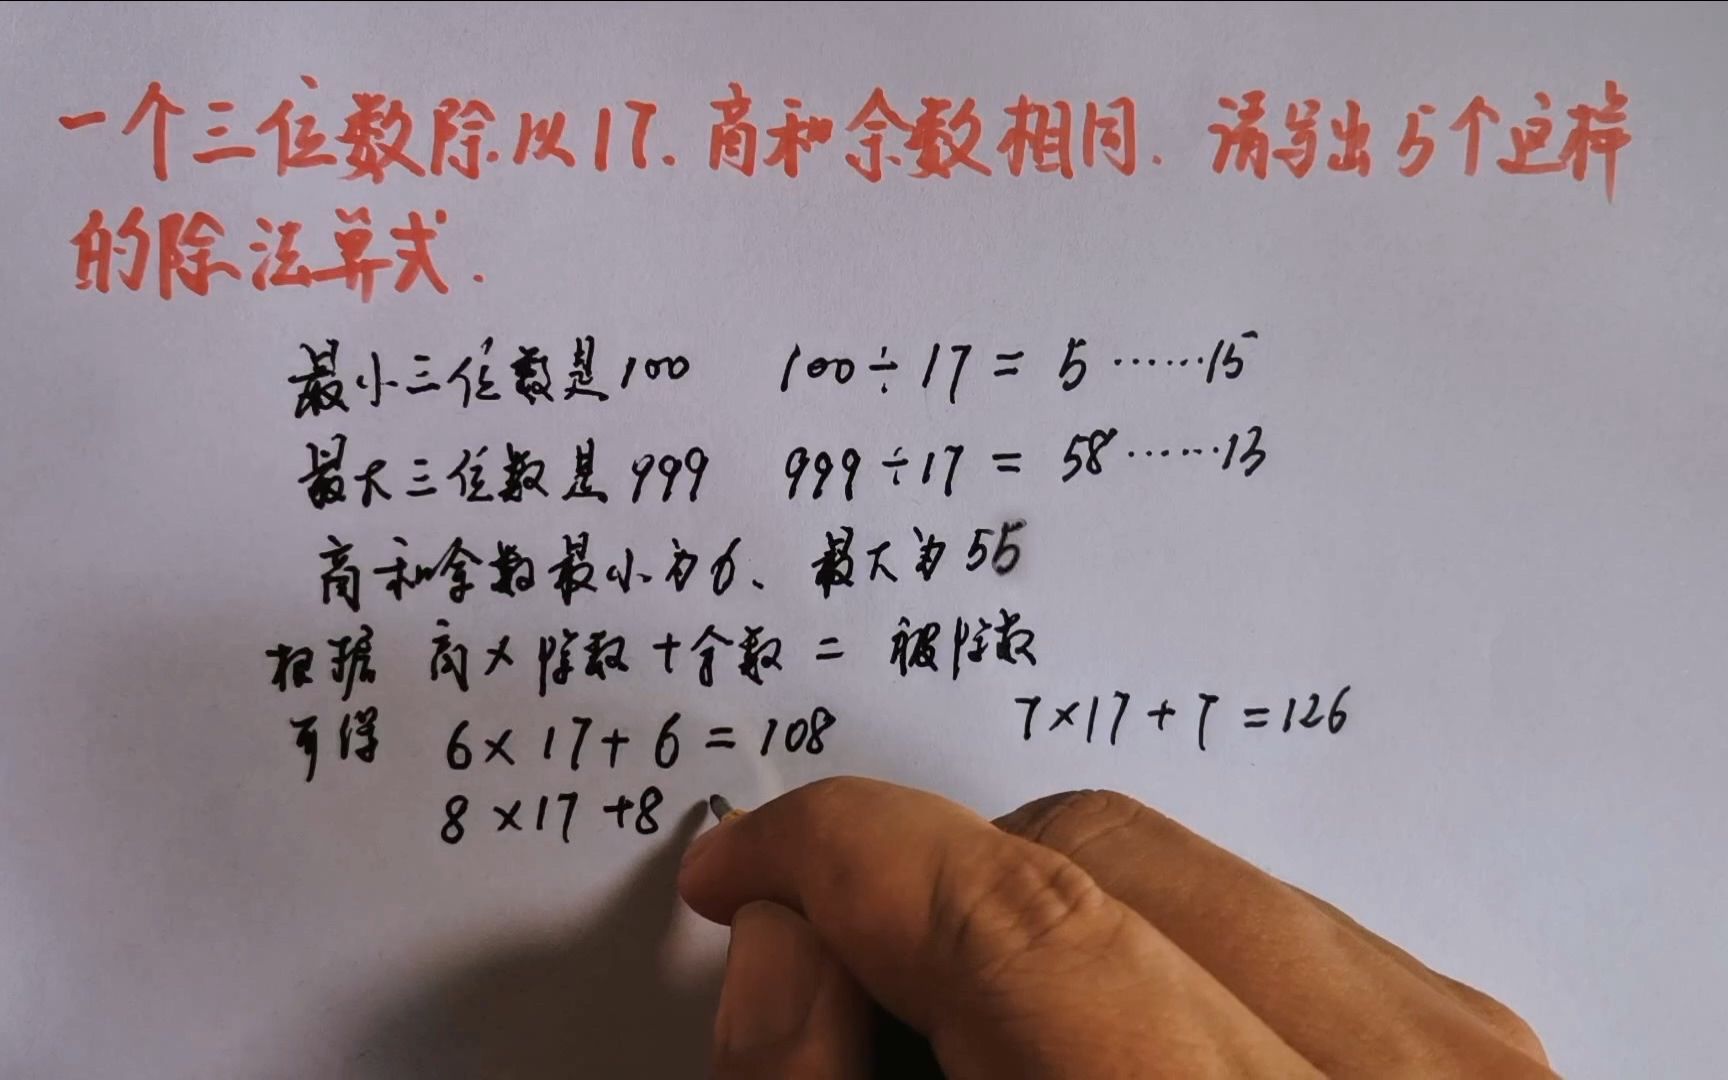 一个三位数除以17.商和余数相同.请写出5个这样
的除法算式.
最小三位数是100 100÷17=5……15
最大三位数是999 999÷17=58……13
商和余数最小为6、最大为55
根据 商×除数+余数=被除数
可得 6×17+6=108 7×17+7=126
8×17+8